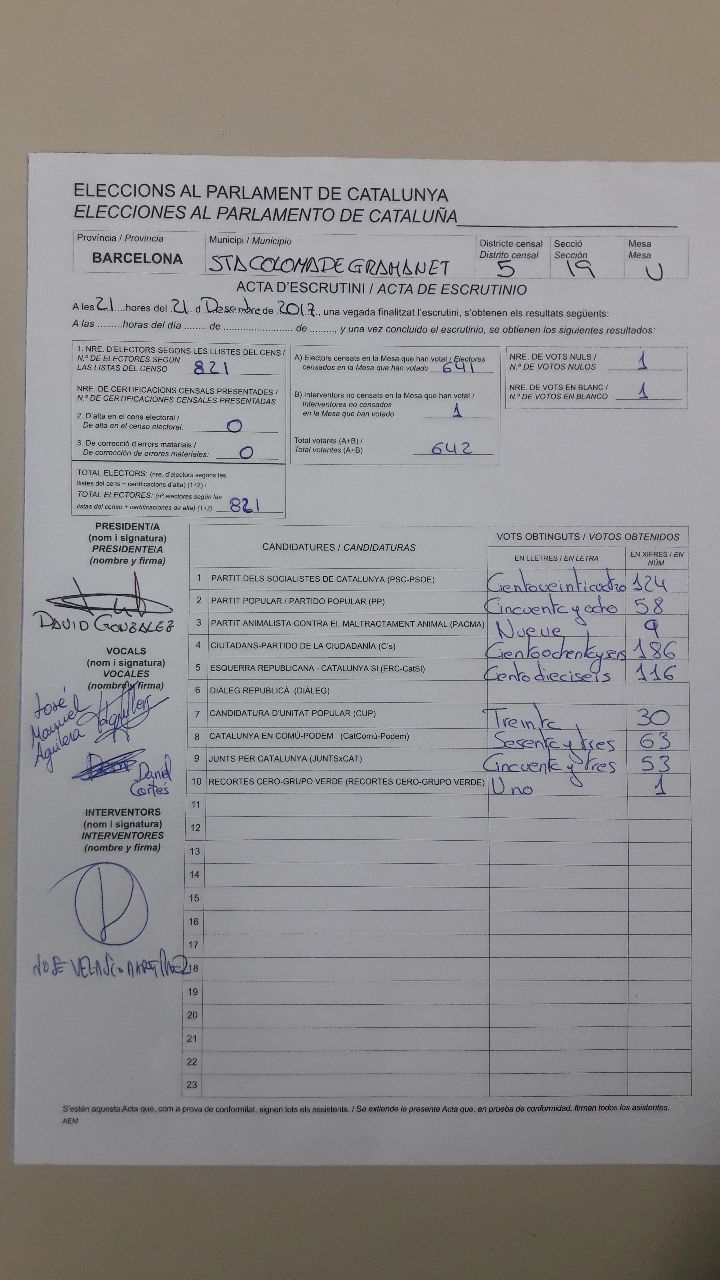 ELECCIONS AL PARLAMENT DE CATALUNYA
ELECCIONES AL PARLAMENTO DE CATALUÑA
Província / Provincia
BARCELONA
Municipi / Municipio
STA COLOMA DE GRAMANET
Districte censal
Distrito censal
5
Secció
Sección
19
Mesa
Mesa
U
ACTA D'ESCRUTINI / ACTA DE ESCRUTINIO
A les 21 hores del 21 d Desembre de 2017, una vegada finalitzat l'escrutini, s'obtenen els resultats següents:
A las ......... hores del día ........ de ........................ de ........., y una vez concluido el escrutinio, se obtienen los siguientes resultados:
1. NRE. D'ELECTORS SEGONS LES LLISTES DEL CENS /
N.º DE ELECTORES SEGÚN
LAS LISTAS DEL CENSO 821
NRE. DE CERTIFICACIONS CENSALS PRESENTADES /
N.º DE CERTIFICACIONES CENSALES PRESENTADAS
2. D'alta en el cens electoral /
De alta en el censo electoral: 0
3. De correcció d'errors materials /
De corrección de errores materiales: 0
TOTAL ELECTORS: (nre. d'electors segons les
llistes del cens + certificacions d'alta) (1+2) /
TOTAL ELECTORES: (nº electores según las
listas del censo + certificaciones de alta) (1+2) 821
A) Electors censats en la Mesa que han votat / Electores
censados en la Mesa que han votado 641
B) Interventors no censats en la Mesa que han votat /
Interventores no censados
en la Mesa que han votado 1
Total votants (A+B) /
Total votantes (A+B) 642
NRE. DE VOTS NULS /
N.º DE VOTOS NULOS 1
NRE. DE VOTS EN BLANC /
N.º DE VOTOS EN BLANCO 1
PRESIDENT/A
(nom i signatura)
PRESIDENTE/A
(nombre y firma)
DAVID GONZALEZ
VOCALS
(nom i signatura)
VOCALES
(nombre y firma)
José
Manuel
Aguilera
Daniel
Cortes
INTERVENTORS
(nom i signatura)
INTERVENTORES
(nombre y firma)
JOSE VELASCO MARTINEZ
CANDIDATURES / CANDIDATURAS
VOTS OBTINGUTS / VOTOS OBTENIDOS
EN LLETRES / EN LETRA
EN XIFRES / EN
NÚM
1 PARTIT DELS SOCIALISTES DE CATALUNYA (PSC-PSOE) Cientoveinticuatro 124
2 PARTIT POPULAR / PARTIDO POPULAR (PP) Cincuenta y ocho 58
3 PARTIT ANIMALISTA CONTRA EL MALTRACTAMENT ANIMAL (PACMA) Nueve 9
4 CIUTADANS-PARTIDO DE LA CIUDADANÍA (C's) Cientoochentayseis 186
5 ESQUERRA REPUBLICANA - CATALUNYA SÍ (ERC-CatSí) Ciento dieciseis 116
6 DIÀLEG REPUBLICÀ (DIÀLEG)
7 CANDIDATURA D'UNITAT POPULAR (CUP) Treinta 30
8 CATALUNYA EN COMÚ-PODEM (CatComú-Podem) Sesenta y tres 63
9 JUNTS PER CATALUNYA (JUNTSxCAT) Cincuenta y tres 53
10 RECORTES CERO-GRUPO VERDE (RECORTES CERO-GRUPO VERDE) Uno 1
11
12
13
14
15
16
17
18
19
20
21
22
23
S'estén aquesta Acta que, com a prova de conformitat, signen tots els assistents. / Se extiende la presente Acta que, en prueba de conformidad, firman todos los asistentes.
AEM